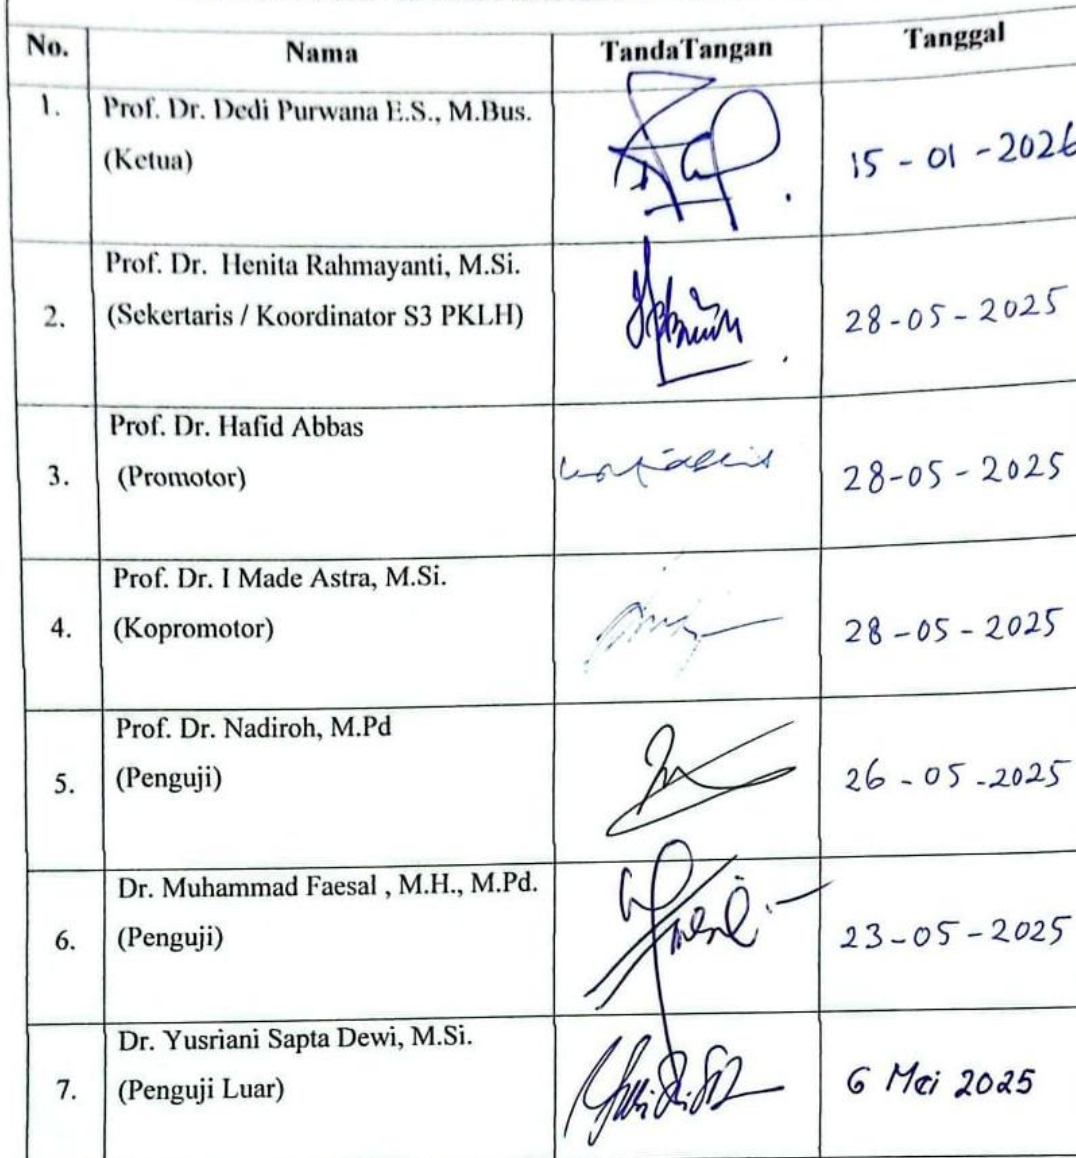 No. Nama TandaTangan Tanggal
1. Prof. Dr. Dedi Purwana E.S., M.Bus.
(Ketua) 15 - 01 - 2026
Prof. Dr. Henita Rahmayanti, M.Si.
2. (Sekertaris / Koordinator S3 PKLH) 28-05-2025
Prof. Dr. Hafid Abbas
3. (Promotor) 28-05-2025
Prof. Dr. I Made Astra, M.Si.
4. (Kopromotor) 28-05-2025
Prof. Dr. Nadiroh, M.Pd
5. (Penguji) 26-05-2025
Dr. Muhammad Faesal , M.H., M.Pd.
6. (Penguji) 23-05-2025
Dr. Yusriani Sapta Dewi, M.Si.
7. (Penguji Luar) 6 Mei 2025